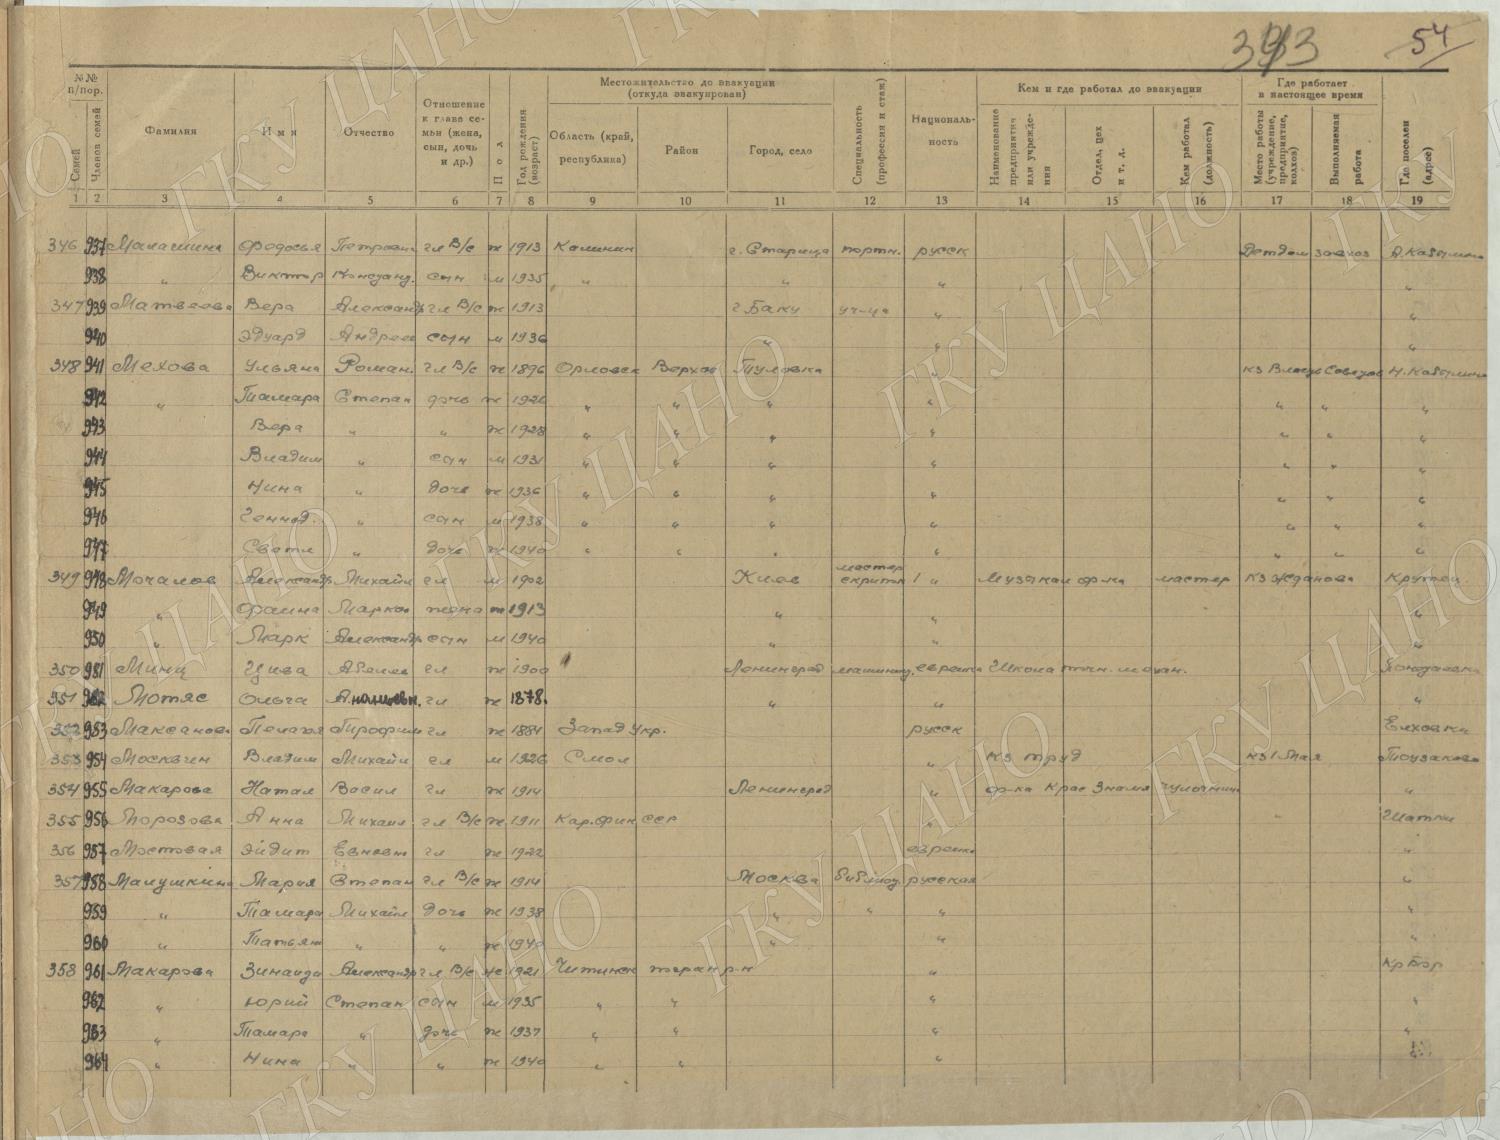 54
№№ п/пор.
Семей
Членов семей
Фамилия
Имя
Отчество
Отношение к главе семьи (жена, сын, дочь и др.)
Пол
Год рождения (возраст)
Местожительство до эвакуации (откуда эвакуирован)
Область (край, республика)
Район
Город, село
Специальность (профессия и стаж)
Националь-ность
Кем и где работал до эвакуации
Наименование предприятия или учреждения
Отдел, цех и т. д.
Кем работал (должность)
Где работает в настоящее время
Место работы (учреждение, предприятие, колхоз)
Выполняемая работа
Где поселен (адрес)
1 2 3 4 5 6 7 8 9 10 11 12 13 14 15 16 17 18 19
346 937 Малашина Федосья Петровна гл В/с ж 1913 Калинин г. Старица портн. русск Детдом завхоз
938 " Виктор сын м 1935 " " " "
347 939 Матвеева Вера Александр гл В/с ж 1913 г Баку уч-ца " "
940 Эдуард Андреев сын м 1936 " " "
348 941 Мехова Ульяна Роман. гл В/с ж 1896 Орловск Верхов Туловка "
942 " Тамара Степан дочь ж 1926 " " " " " " "
943 Вера " " ж 1928 " " " " " " "
944 Владим " сын м 1931 " " " " " " "
945 Нина " дочь ж 1936 " " " " " " "
946 Геннад. " сын м 1938 " " " " " " "
947 Светл " дочь ж 1940 " " " " " " "
349 948 Мочалов Александр Михайл гл м 1902 Киев мастер " Музыкал ф-ка мастер кз Жданова Крутец
949 " Фаина Марков жена ж 1913 " " "
950 " Марк Александр сын м 1940 " " "
350 951 Минц Цива Абелев гл ж 1900 Ленинград еврейка Школа точн. механ.
351 952 Мотяс Ольга гл ж 1878. " " "
352 953 Пелагея Трофим гл ж 1884 Запад Укр. русск Елховка
353 954 Москвин Владим Михайл гл м 1926 Смол " кз труд кз 1 Мая
354 955 Макарова Натал Васил гл ж 1914 Ленинград " ф-ка Крас Знамя чулочниц "
355 956 Морозова Анна Михаил гл В/с ж 1911 Кар. фин ССР " Шатки
356 957 Мостовая Эйдит гл ж 1922 еврейка "
357 958 Малушкина Мария Степан гл В/с ж 1914 Москва русская "
959 " Тамара Михайл дочь ж 1938 " " " "
960 " Татьян " " ж 1940 " " "
358 961 Макарова Зинаида Александр гл В/с ж 1921 Читинск р-н " Кр Бор
962 " Юрий Степан сын м 1935 " " " "
963 " Тамара " дочь ж 1937 " " " "
964 " Нина " " ж 1940 " " " "
ГКУ ЦАНО